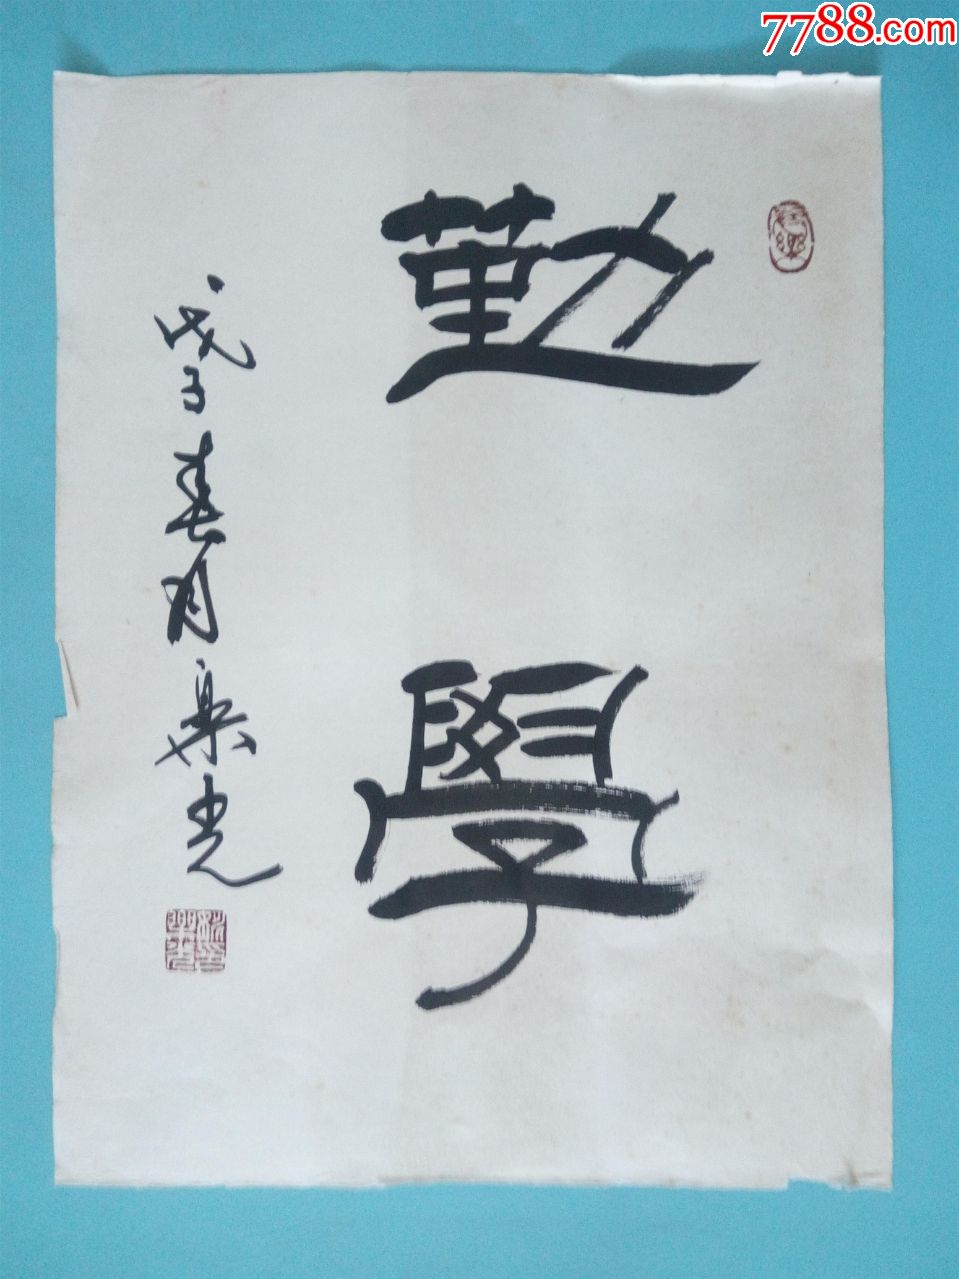 7788.com
勤學
戊子春月樂光